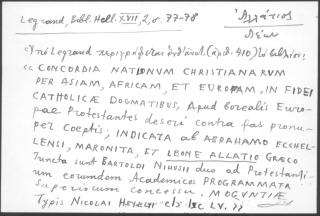 Legrand, Bibl. Hell. XVII, 2, σ. 77-78
Ἀλλάτιος
Λέων
Ὑπό Legrand περιγράφεται (ἀριθ. 410) τό βιβλίον:
« CONCORDIA NATIONVM CHRISTIANARVM
PER ASIAM, AFRICAM, ET EUROPAM, IN FIDEI
CATHOLICÆ DOGMATIBUS, Apud borealis Euro-
pae Protestantes deseri contra fas pronu-
per coeptis; INDICATA ab ABRAHAMO ECCHEL-
LENSI, MARONITA, ET LEONE ALLATIO GRÆCO
Juncta sunt BARTOLDI NIHUSII duo ad Protestanti-
um eorumdem Academicos PROGRAMMATA
Superiorum concessu, MOGVNTIÆ
Typis NICOLAI HEYLLII LV. »